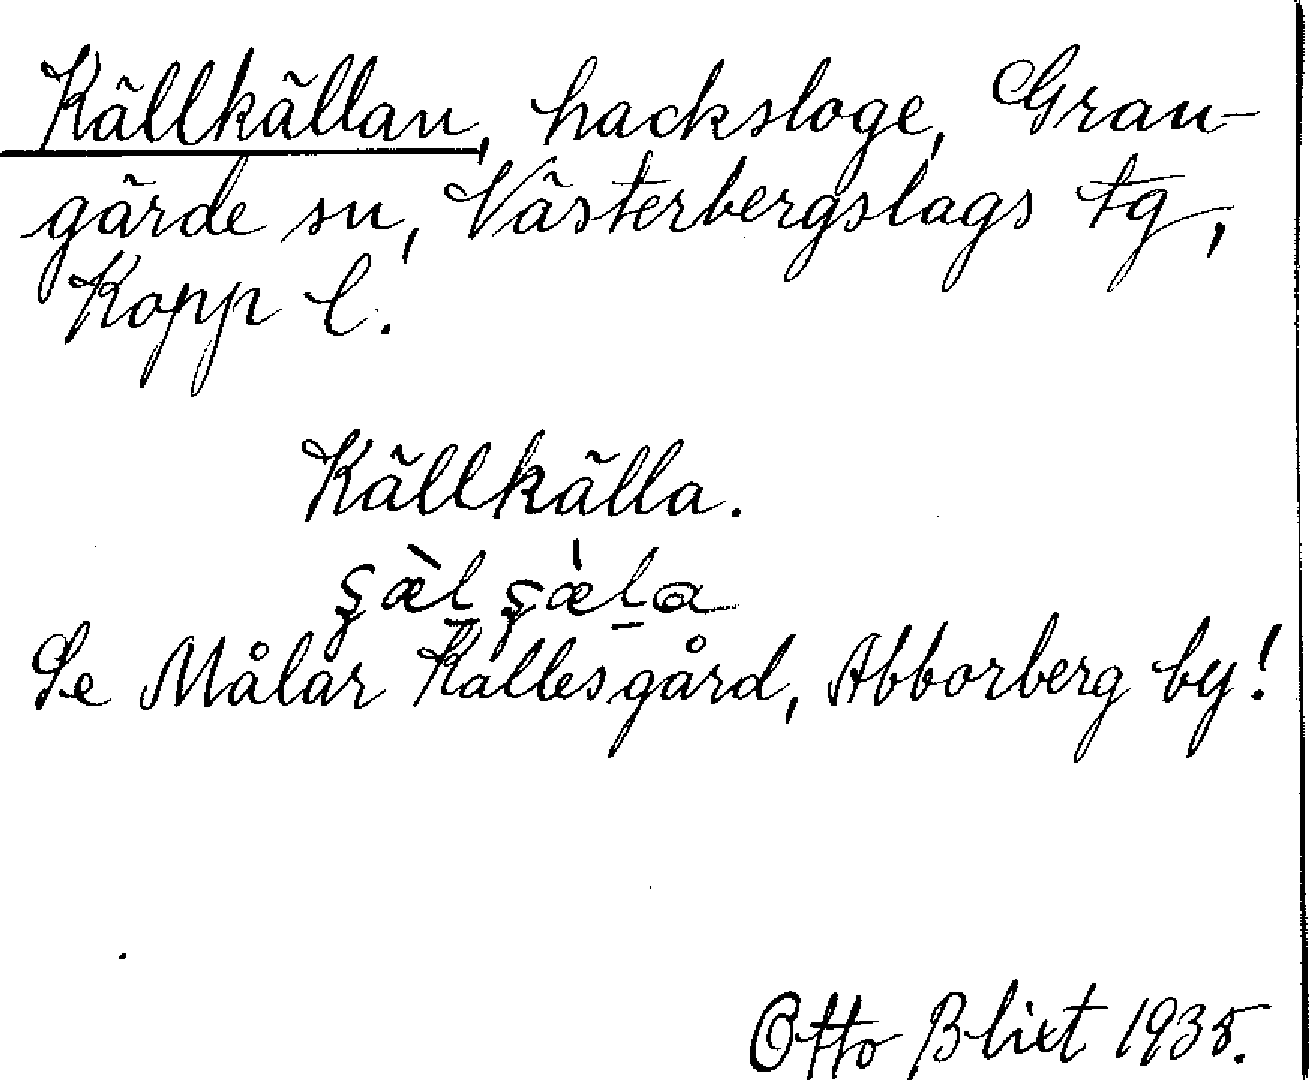 Källkällan, hacksloge, Gran-
gärde sn, Västerbergslags tg,
Kopp l.
Källkälla.
şæ̀l şæ̀la
Se Målar Kallesgård, Abborberg by!
Otto Blixt 1935.